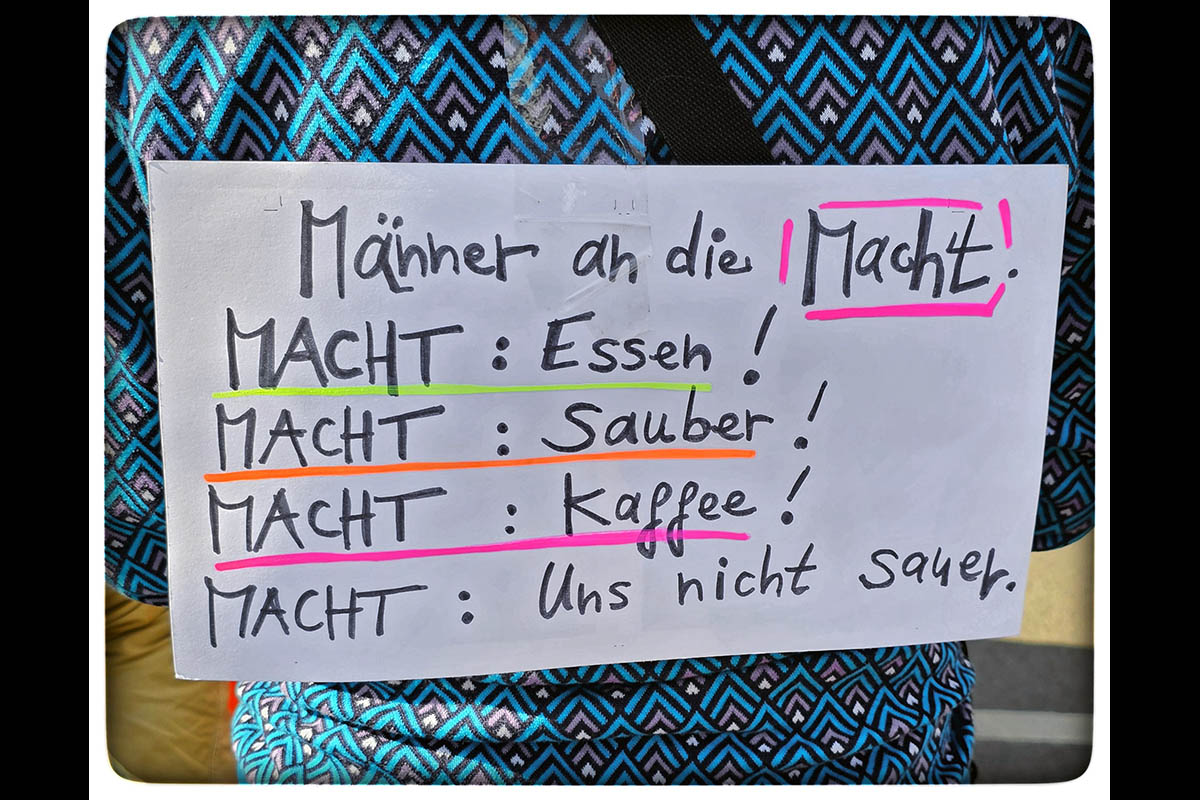 Männer an die Macht!
MACHT : Essen !
MACHT : Sauber !
MACHT : Kaffee !
MACHT : Uns nicht sauer.